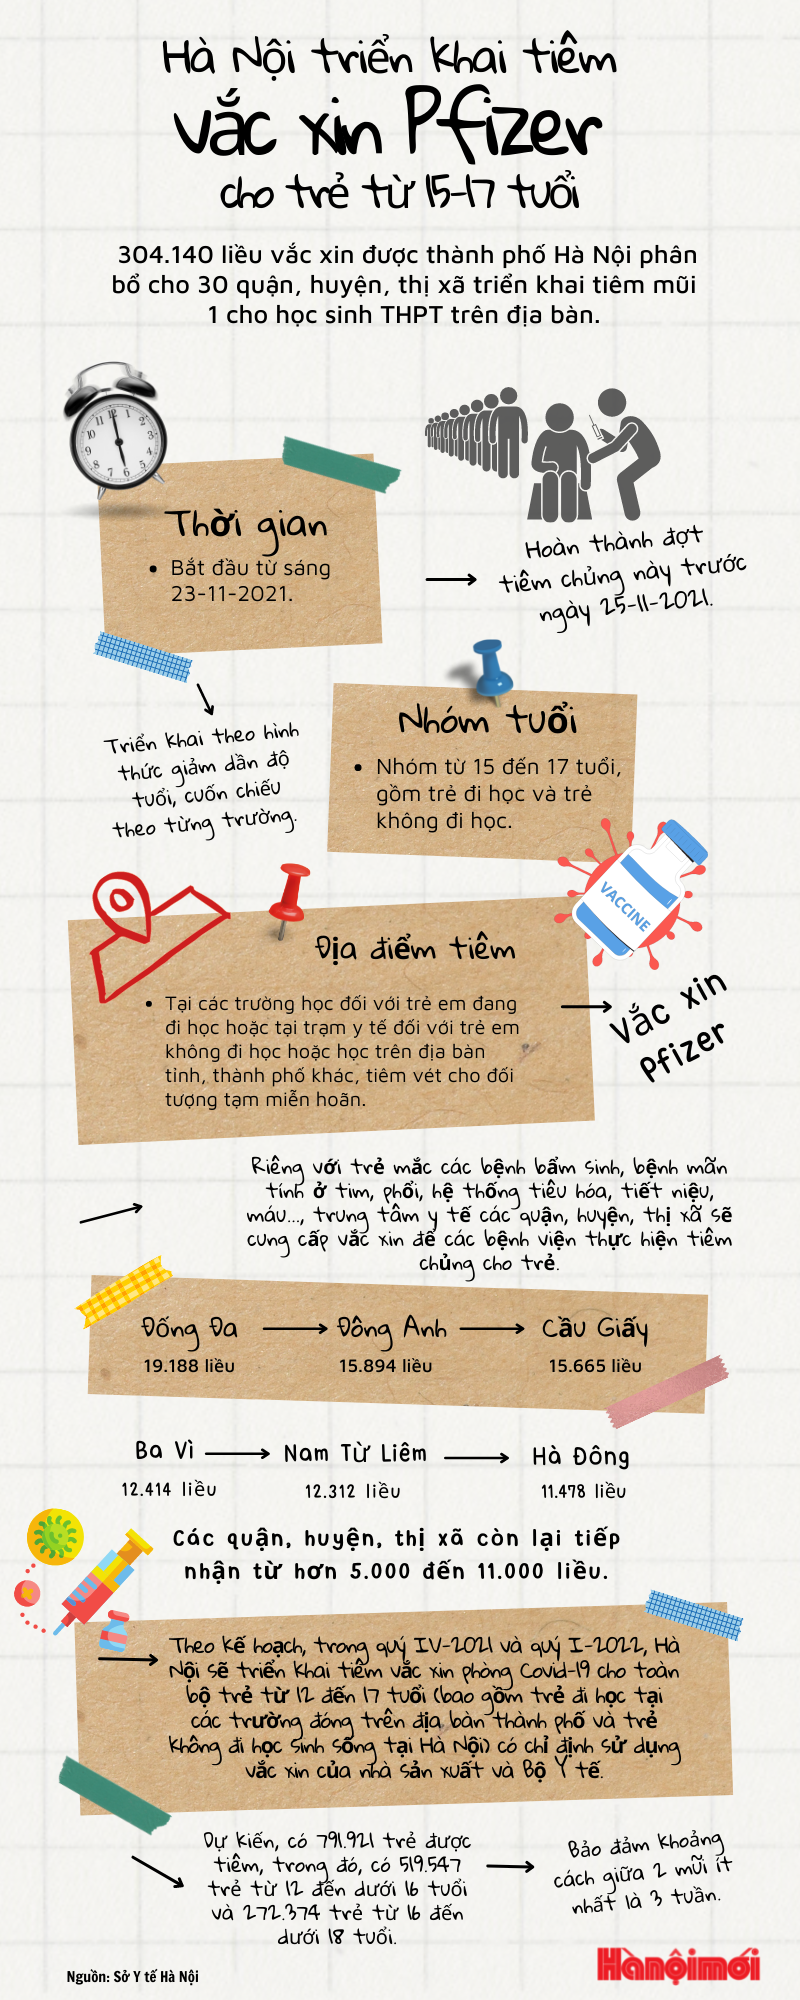 Hà Nội triển khai tiêm
vắc xin Pfizer
cho trẻ từ 15-17 tuổi
304.140 liều vắc xin được thành phố Hà Nội phân
bổ cho 30 quận, huyện, thị xã triển khai tiêm mũi
1 cho học sinh THPT trên địa bàn.
Thời gian
• Bắt đầu từ sáng
23-11-2021.
Hoàn thành đợt
tiêm chủng này trước
ngày 25-11-2021.
Triển khai theo hình
thức giảm dần độ
tuổi, cuốn chiếu
theo từng trường.
Nhóm tuổi
• Nhóm từ 15 đến 17 tuổi,
gồm trẻ đi học và trẻ
không đi học.
VACCINE
Địa điểm tiêm
• Tại các trường học đối với trẻ em đang
đi học hoặc tại trạm y tế đối với trẻ em
không đi học hoặc học trên địa bàn
tỉnh, thành phố khác, tiêm vét cho đối
tượng tạm miễn hoãn.
Vắc xin
pfizer
Riêng với trẻ mắc các bệnh bẩm sinh, bệnh mãn
tính ở tim, phổi, hệ thống tiêu hóa, tiết niệu,
máu..., trung tâm y tế các quận, huyện, thị xã sẽ
cung cấp vắc xin để các bệnh viện thực hiện tiêm
chủng cho trẻ.
Đống Đa
Đông Anh
Cầu Giấy
19.188 liều
15.894 liều
15.665 liều
Ba Vì
Nam Từ Liêm
Hà Đông
12.414 liều
12.312 liều
11.478 liều
Các quận, huyện, thị xã còn lại tiếp
nhận từ hơn 5.000 đến 11.000 liều.
Theo kế hoạch, trong quý IV-2021 và quý I-2022, Hà
Nội sẽ triển khai tiêm vắc xin phòng Covid-19 cho toàn
bộ trẻ từ 12 đến 17 tuổi (bao gồm trẻ đi học tại
các trường đóng trên địa bàn thành phố và trẻ
không đi học sinh sống tại Hà Nội) có chỉ định sử dụng
vắc xin của nhà sản xuất và Bộ Y tế.
Dự kiến, có 791.921 trẻ được
tiêm, trong đó, có 519.547
trẻ từ 12 đến dưới 16 tuổi
và 272.374 trẻ từ 16 đến
dưới 18 tuổi.
Bảo đảm khoảng
cách giữa 2 mũi ít
nhất là 3 tuần.
Nguồn: Sở Y tế Hà Nội
Hànộimới